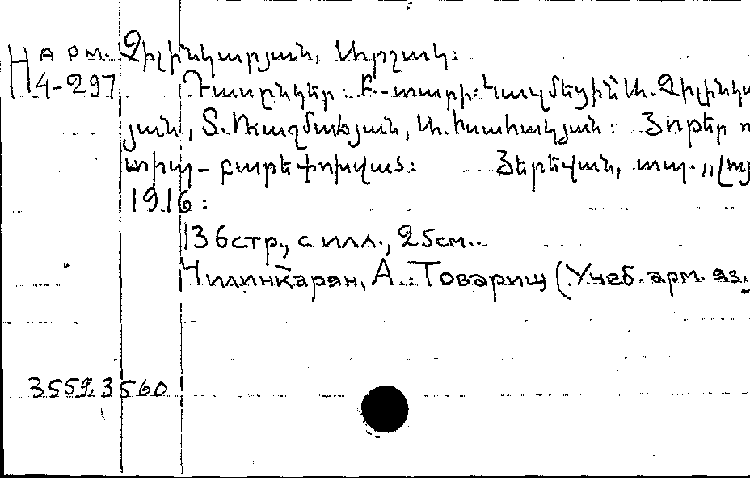 На рм. Չիլինկարյան, Արշակ:
4-297 Դասընկեր: Բ-տարի: Կազմեցին Ա. Չիլինկա
յան, Տ. Ռազմասյան, Ա. Իսահակյան: Յոթեր
տիպ - բարեփոխված: Յերեվան, տպ. „Լույ
1916:
136стр., с илл., 25см.
Чилинкарян, А. Товарищ (Учеб. арм. яз.
3559 3560